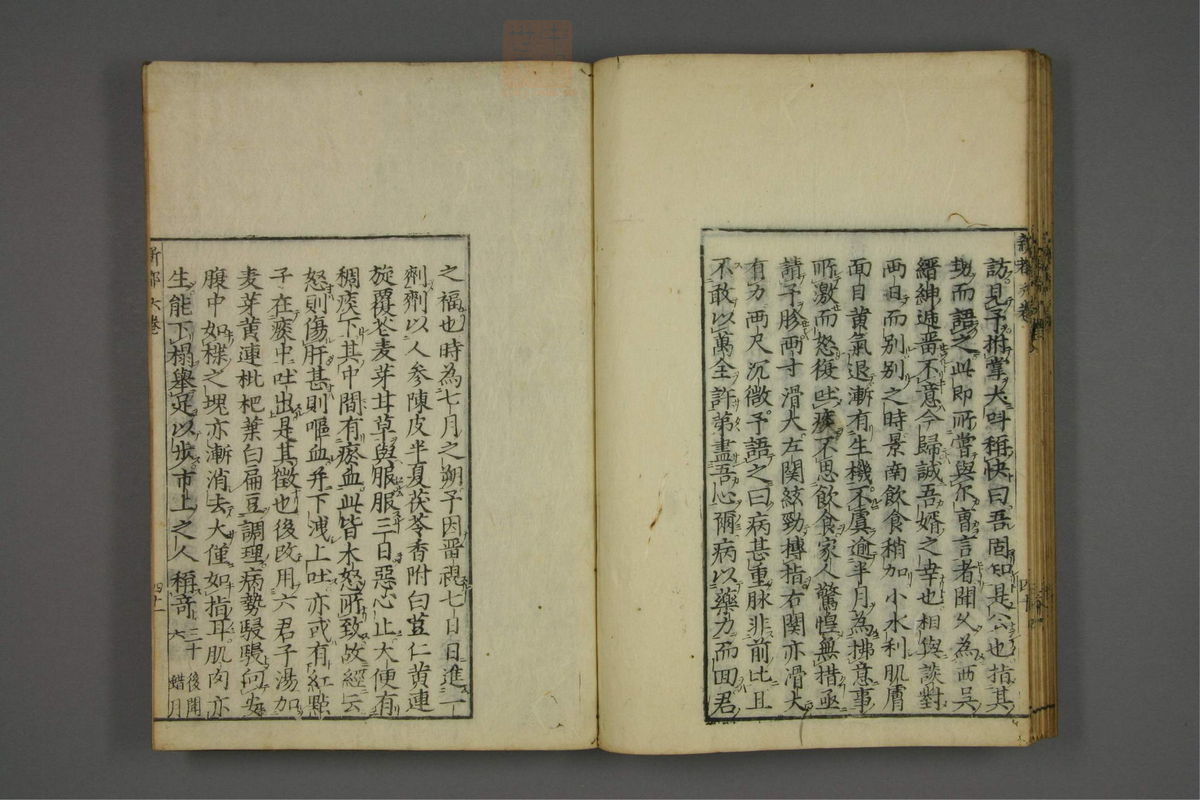 訪見予拊掌大呌稱快曰吾固知是公也指其
甥而語之此即所嘗與尔曹言者聞久為西吳
縉紳逓畱不意今歸誠吾婿之幸也相與談對
兩日而別別之時景南飲食稍加小水利肌膚
面目黃氣退漸有生機不虞逾半月為拂意事
所激而怒復吐痰不思飲食家人驚惶無措亟
請予胗兩寸滑大左関絃勁摶指右関亦滑大
有力兩尺沉微予語之曰病甚重脉非前比且
不敢以萬全許弟盡吾心爾病以藥力而回君
新都 卷
四十
之福也時為七月之朔予因畱視七日日進一
劑劑以人参陳皮半夏茯苓香附白荳仁黄連
旋覆花麦芽甘草與服服三日惡心止大便有
稠痰下其中間有瘀血此皆木怒所致故經云
怒則傷肝甚則嘔血并下洩上吐亦或有紅點
子在痰中吐出是其徵也後改用六君子湯加
麦芽黄連枇杷葉白扁豆調理病勢駸駸向安
腹中如楪之塊亦漸消去大僅如指耳肌肉亦
生能下榻舉足以步市上之人稱奇
三十六
後閏
蜡月
新都 六卷
四十一